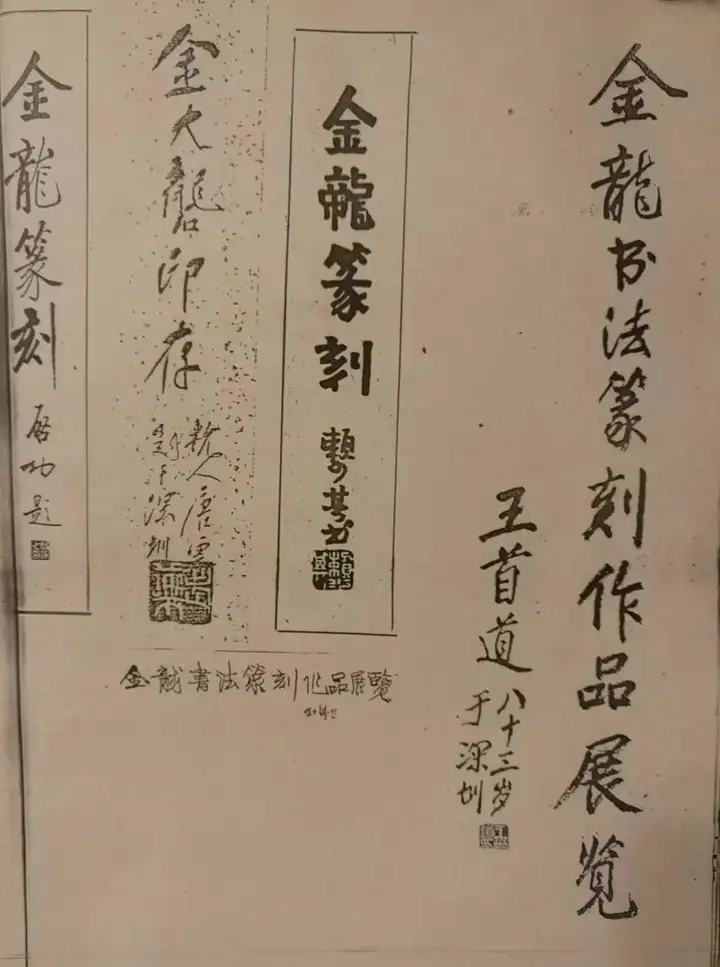 金龍书法篆刻作品展览
王首道
八十三岁
于深圳
金龍篆刻
賴少其书
金大龍印存
杭人唐雲
题于深圳
金龍篆刻
启功题
金龍書法篆刻作品展覽